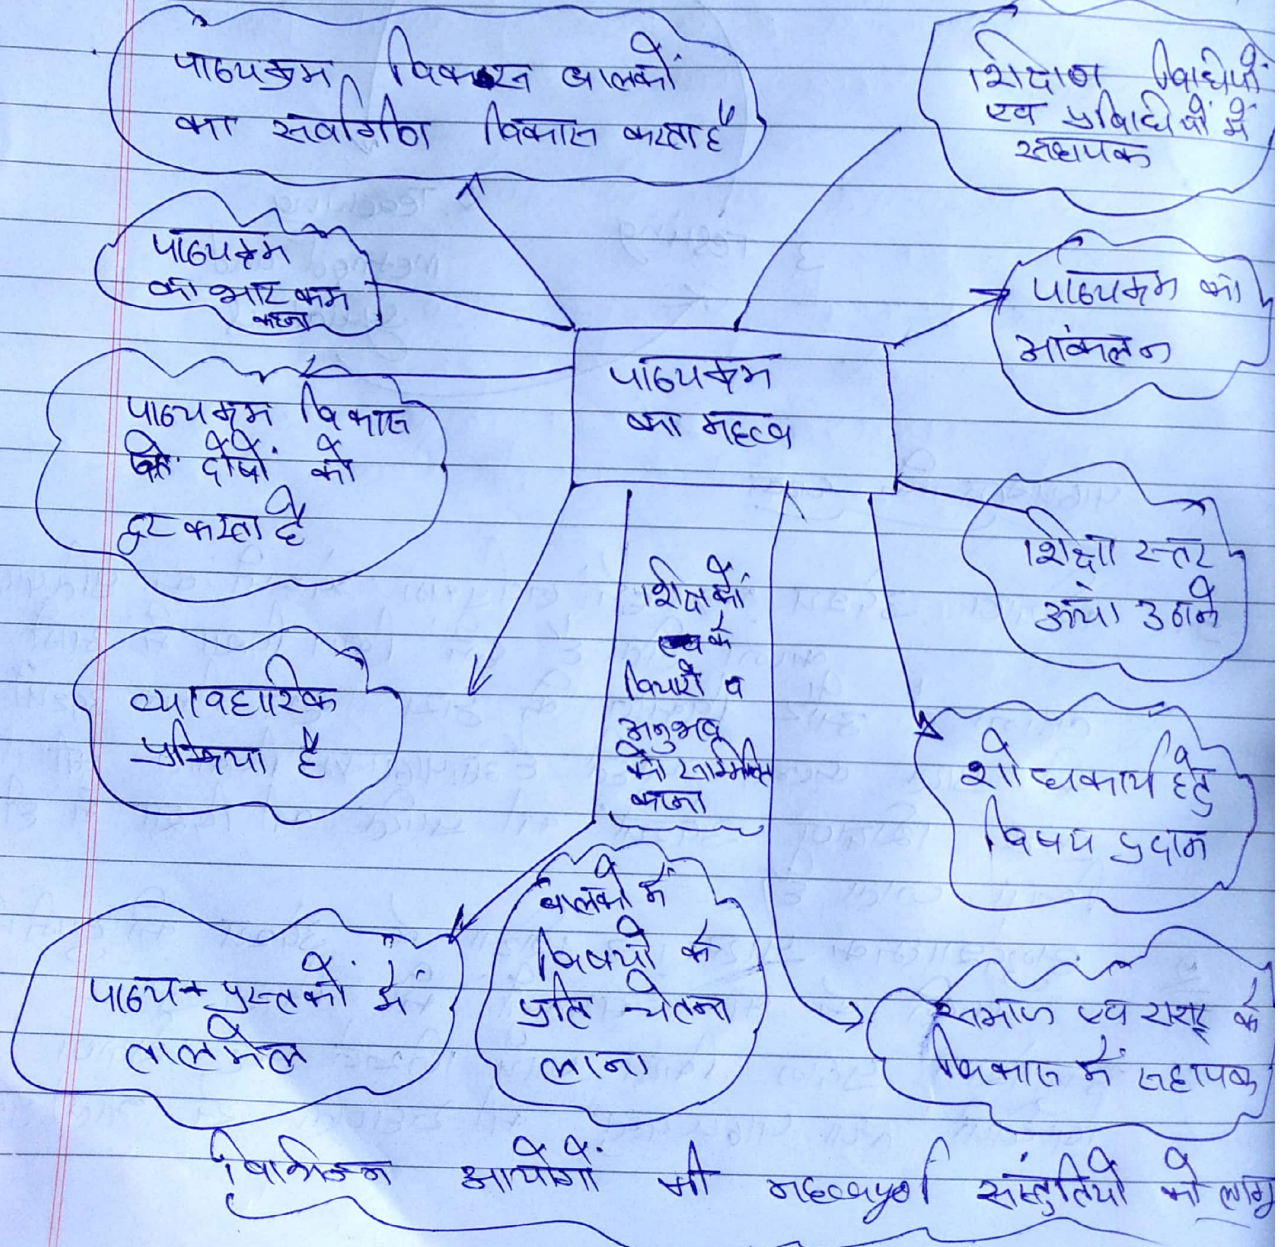 पाठ्यक्रम विकास बालकों
का सर्वांगीण विकास करता है
शिक्षण विधियों
एवं प्रविधियों में
सहायक
पाठ्यक्रम
का भार कम
करना
पाठ्यक्रम का
आंकलन
पाठ्यक्रम
का महत्व
पाठ्यक्रम विकास
के दोषों को
दूर करता है
शिक्षा स्तर
ऊंचा उठाने
शिक्षकों
के
विचारों व
अनुभव
को सम्मिलित
करना
व्यावहारिक
प्रक्रिया है
शोधकार्य हेतु
विषय प्रदान
बालकों में
विषयों के
प्रति चेतना
लाना
पाठ्य पुस्तकों में
तालमेल
समाज एवं राष्ट्र के
विकास में सहायक
विभिन्न आयोगों की महत्वपूर्ण संस्तुतियों को लागू